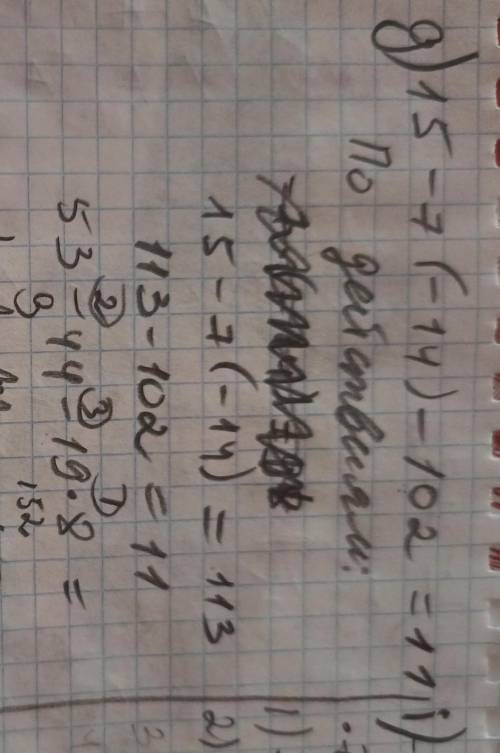 д) 15 - 7 (-14) - 102 = 11
По действиям:
15 - 7 (-14) = 113
113 - 102 = 11
2) 3) 1)
53 - 44 - 19 · 8 =
9 152
i)
1)
2)